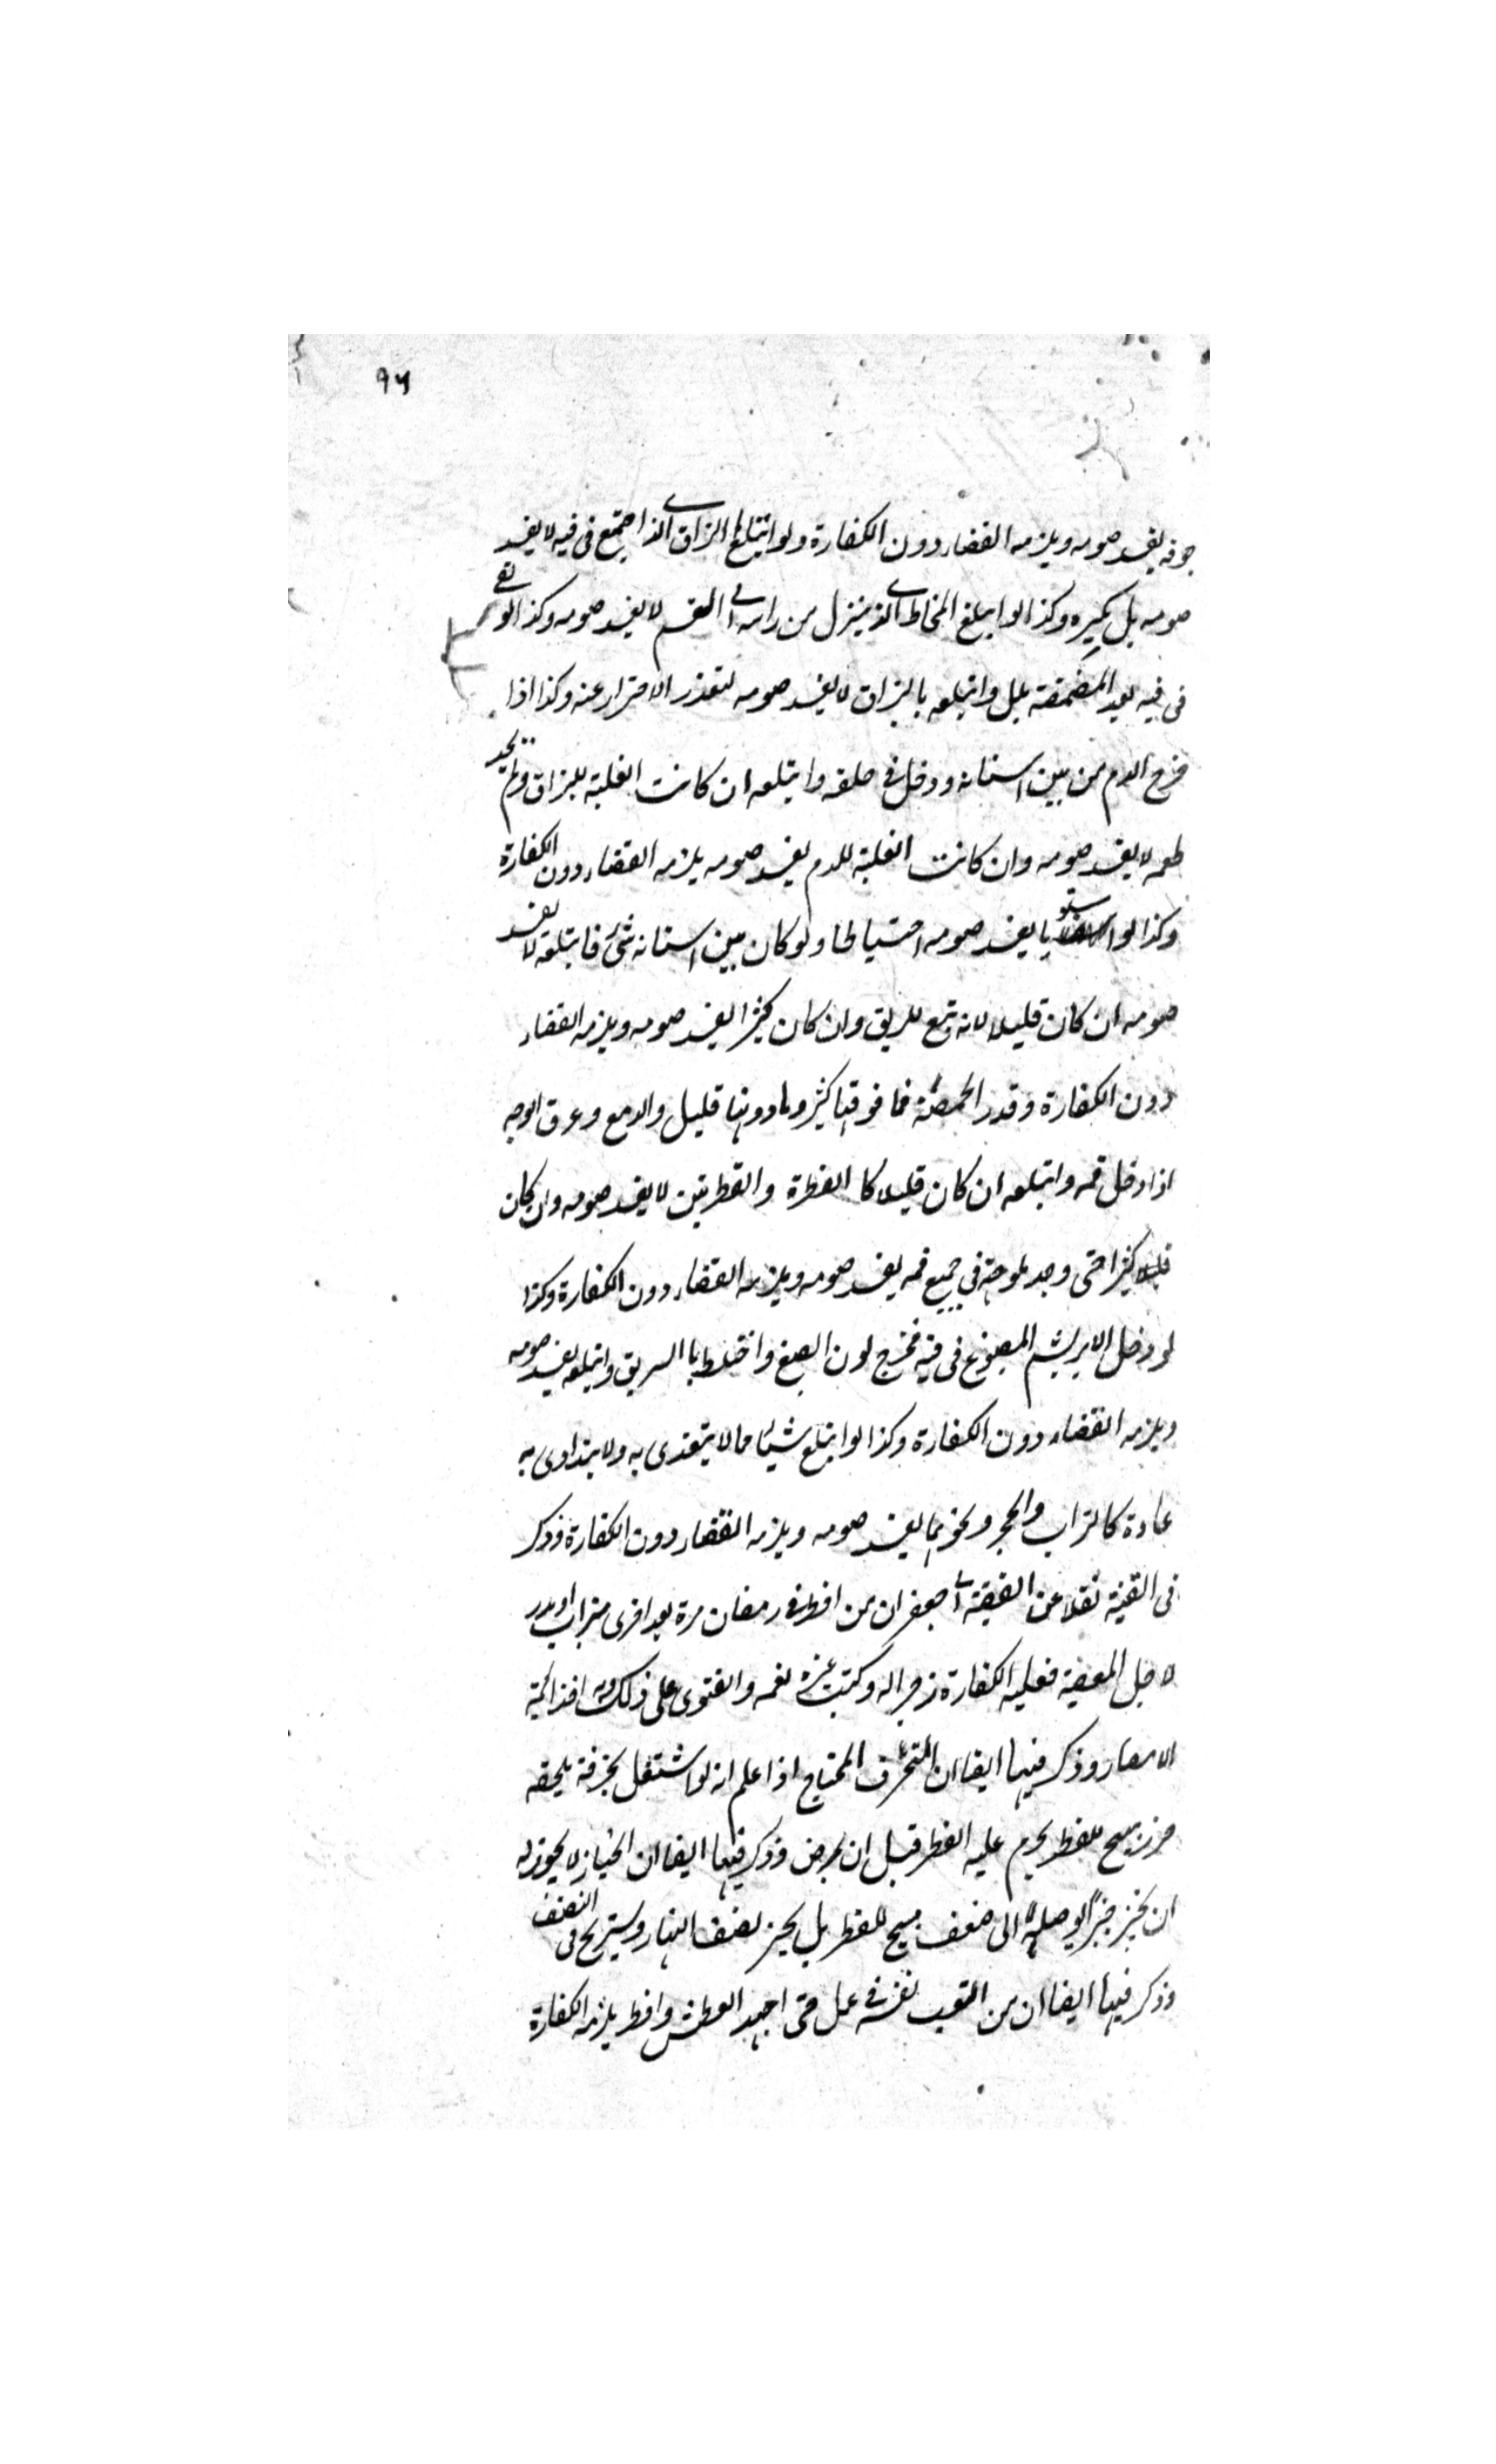 ٩٦
جوفه يفسد صومه ويلزمه القضاء دون الكفارة ولو ابتلع البزاق الذى اجتمع فى فيه لا يفسد
صومه بل يكره وكذا لو ابتلع المخاط الذى ينزل من راسه الى الفم لا يفسد صومه وكذا لو بقى
فى فيه بعد المضمضة بلل وابتلعه بالبزاق لا يفسد صومه لتعذر الاحتراز عنه وكذا اذا
خرج الدم من بين اسنانه ودخل فى حلقه وابتلعه ان كانت الغلبة للبزاق ولم يجد
طعمه لا يفسد صومه وان كانت الغلبة للدم يفسد صومه يلزمه القضاء دون الكفارة
وكذا لو استويا يفسد صومه احتياطا ولو كان بين اسنانه شئ فابتلعه لا يفسد
صومه ان كان قليلا لانه تبع للريق وان كان كثيرا يفسد صومه ويلزمه القضاء
دون الكفارة وقدر الحمصة فما فوقها كثير وما دونها قليل والدمع وعرق الوجه
اذا دخل فمه وابتلعه ان كان قليلا كا القطرة والقطرتين لا يفسد صومه وان كان
كثيرا حتى وجد ملوحته فى جميع فمه يفسد صومه ويلزمه القضاء دون الكفارة وكذا
لو دخل الابريشم المصبوغ فى فيه فخرج لون الصبغ واختلط با الريق وابتلعه يفسد صومه
ويلزمه القضاء دون الكفارة وكذا لو ابتلع شيئا مما لا يتغذى به ولا يتداوى به
عادة كالتراب والحجر ونحوهما يفسد صومه ويلزمه القضاء دون الكفارة وذكر
فى القنية نقلا عن الفقيه ابى جعفر ان من افطر فى رمضان مرة بعد اخرى بتراب او مدر
لاجل المعصية فعليه الكفارة زجرا له وكتب غيره نعم والفتوى على ذلك وبه اخذ ائمة
الامصار وذكر فيها ايضا ان المتحرف المحتاج اذا علم انه لو اشتغل بحرفته يلحقه
ضرر يبيح للفطر يحرم عليه الفطر قبل ان يمرض وذكر فيها ايضا ان الخباز لا يجوز له
ان يخبز خبزا يوصله الى ضعف يبيح للفطر بل يخبز نصف النهار ويستريح فى النصف
وذكر فيها ايضا ان من اتعب نفسه فى عمل حتى اجهد العطش وافطر يلزمه الكفارة